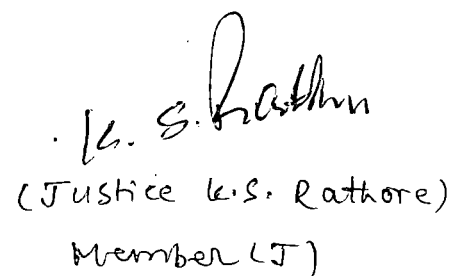 K. S. Rathore
(Justice K.S. Rathore)
Member (J)